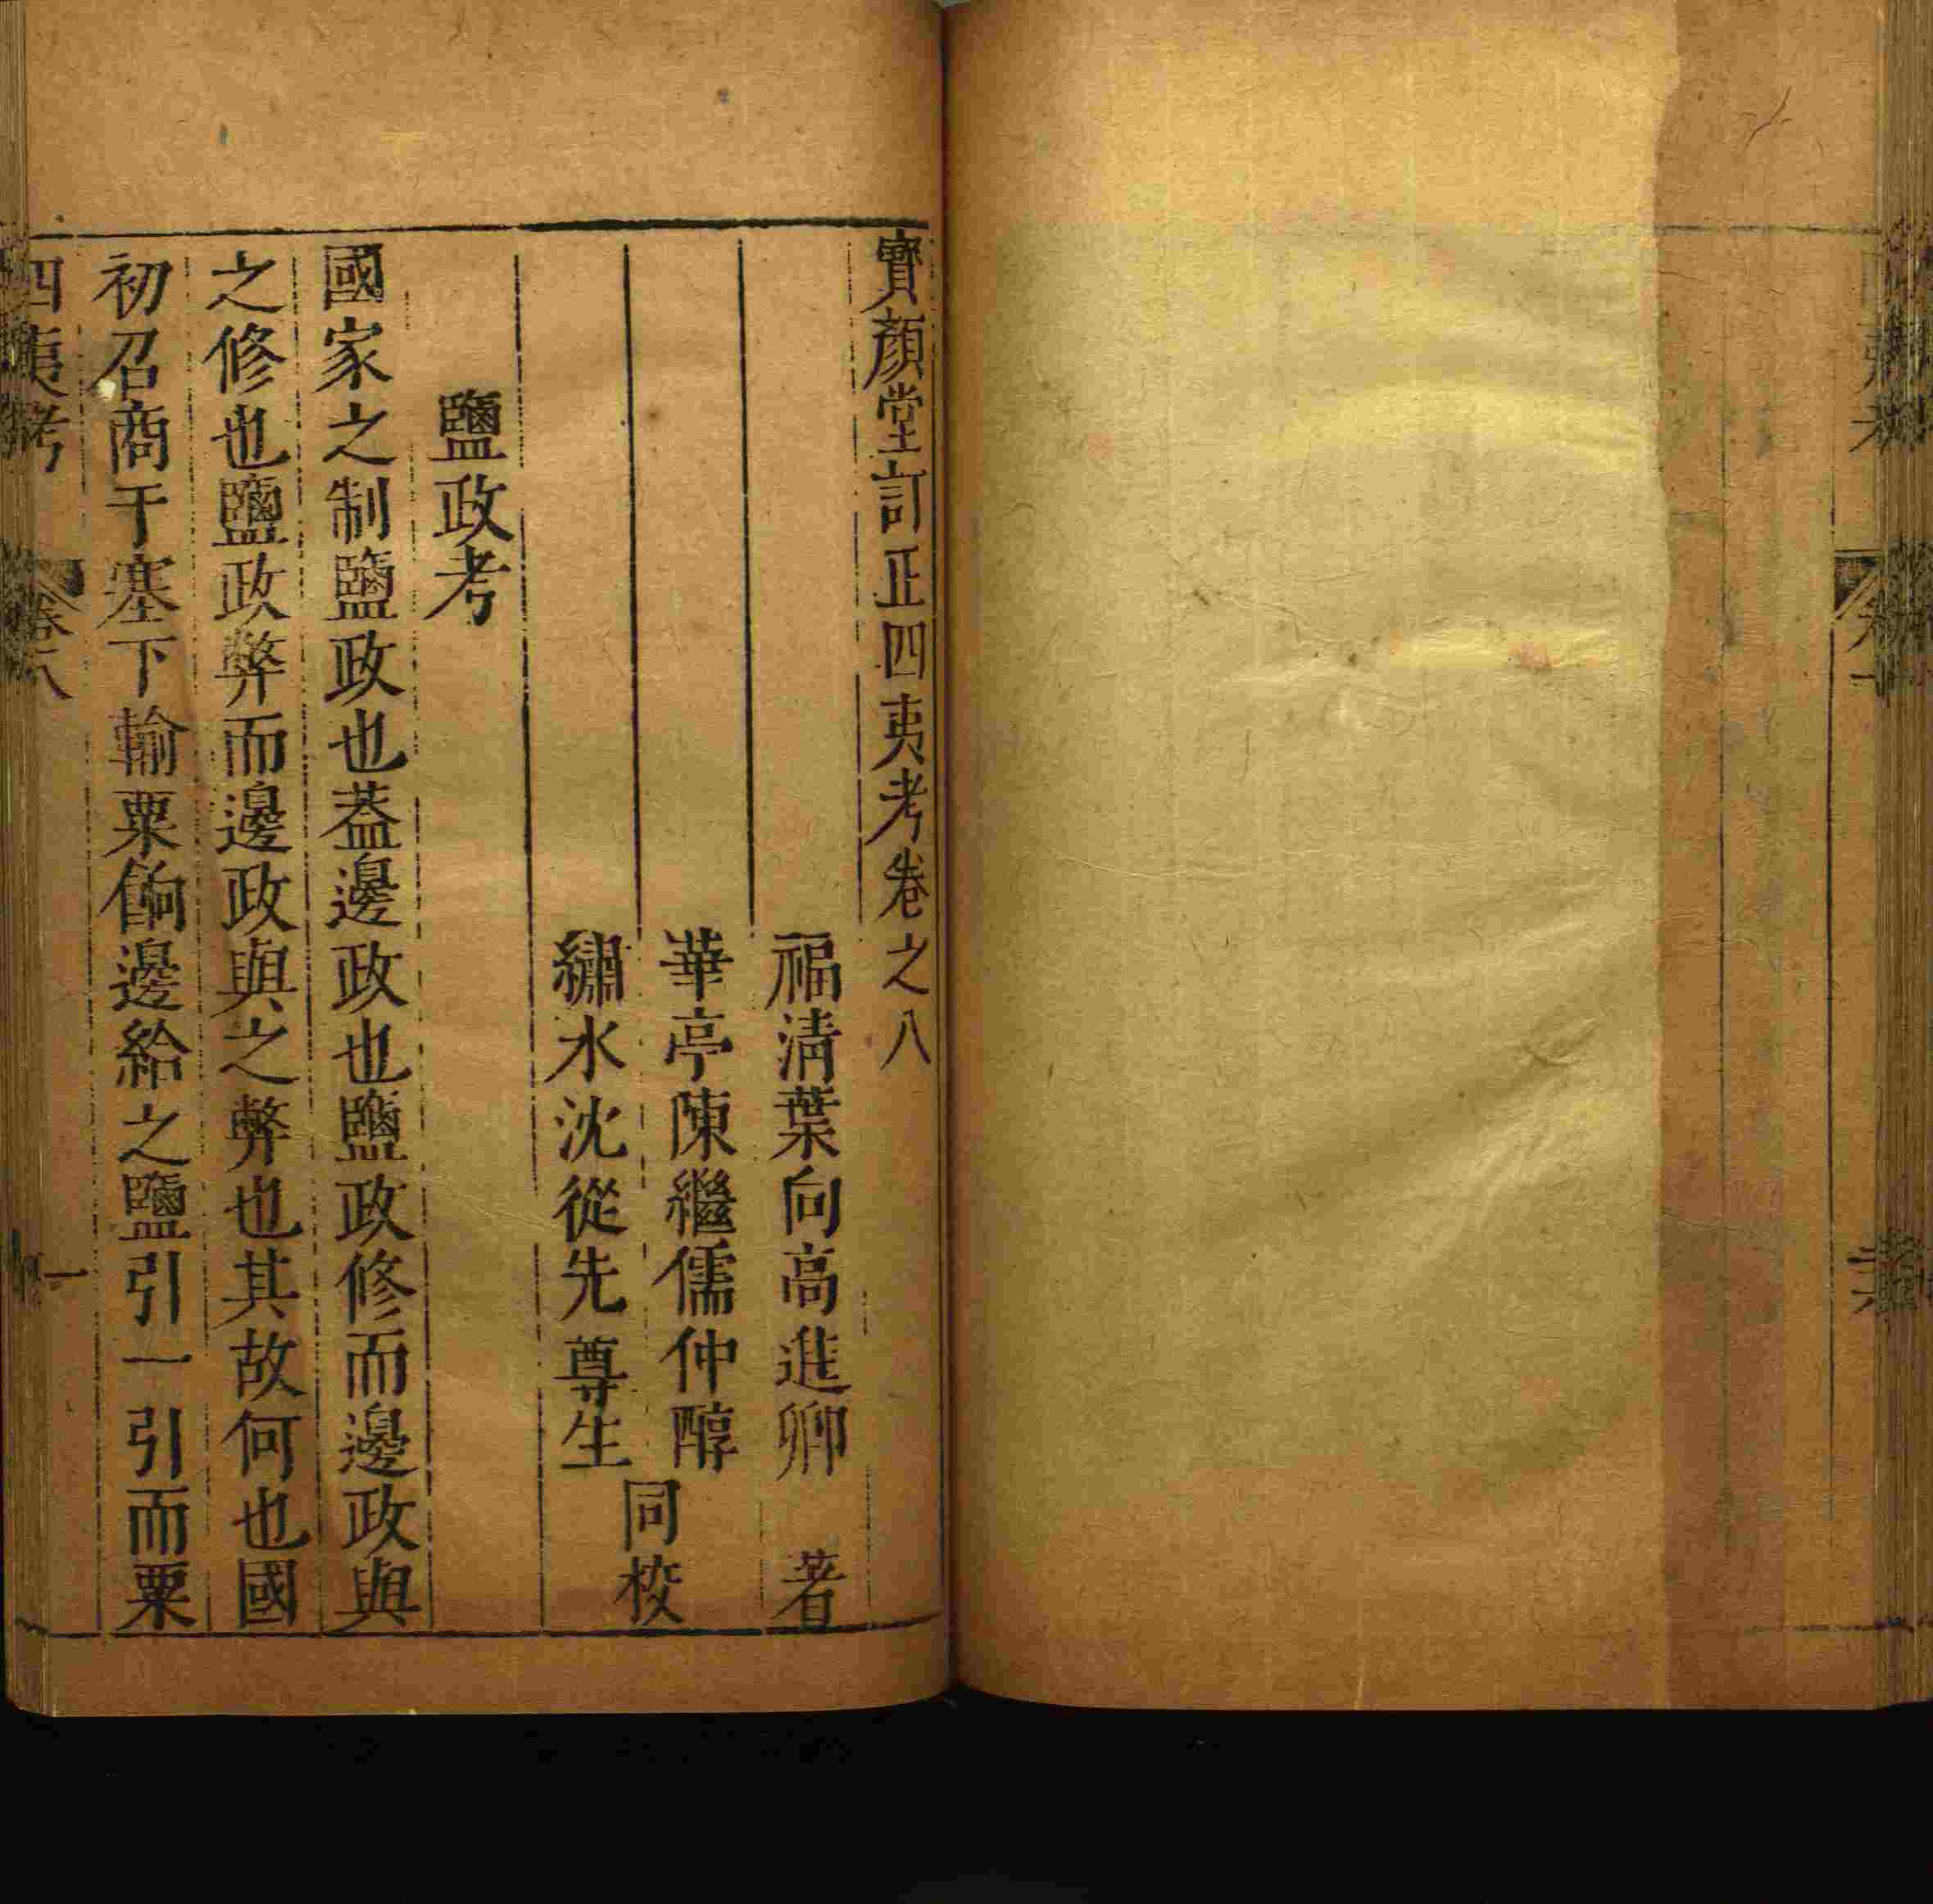 寶顏堂訂正四夷考卷之八
福清葉向高進卿　著
華亭陳繼儒仲醇
繡水沈從先尊生
同校
鹽政考
國家之制鹽政也葢邊政也鹽政修而邊政與
之修也鹽政弊而邊政與之弊也其故何也國
初召商于塞下輸粟餉邊給之鹽引一引而粟
四夷考　卷八　一